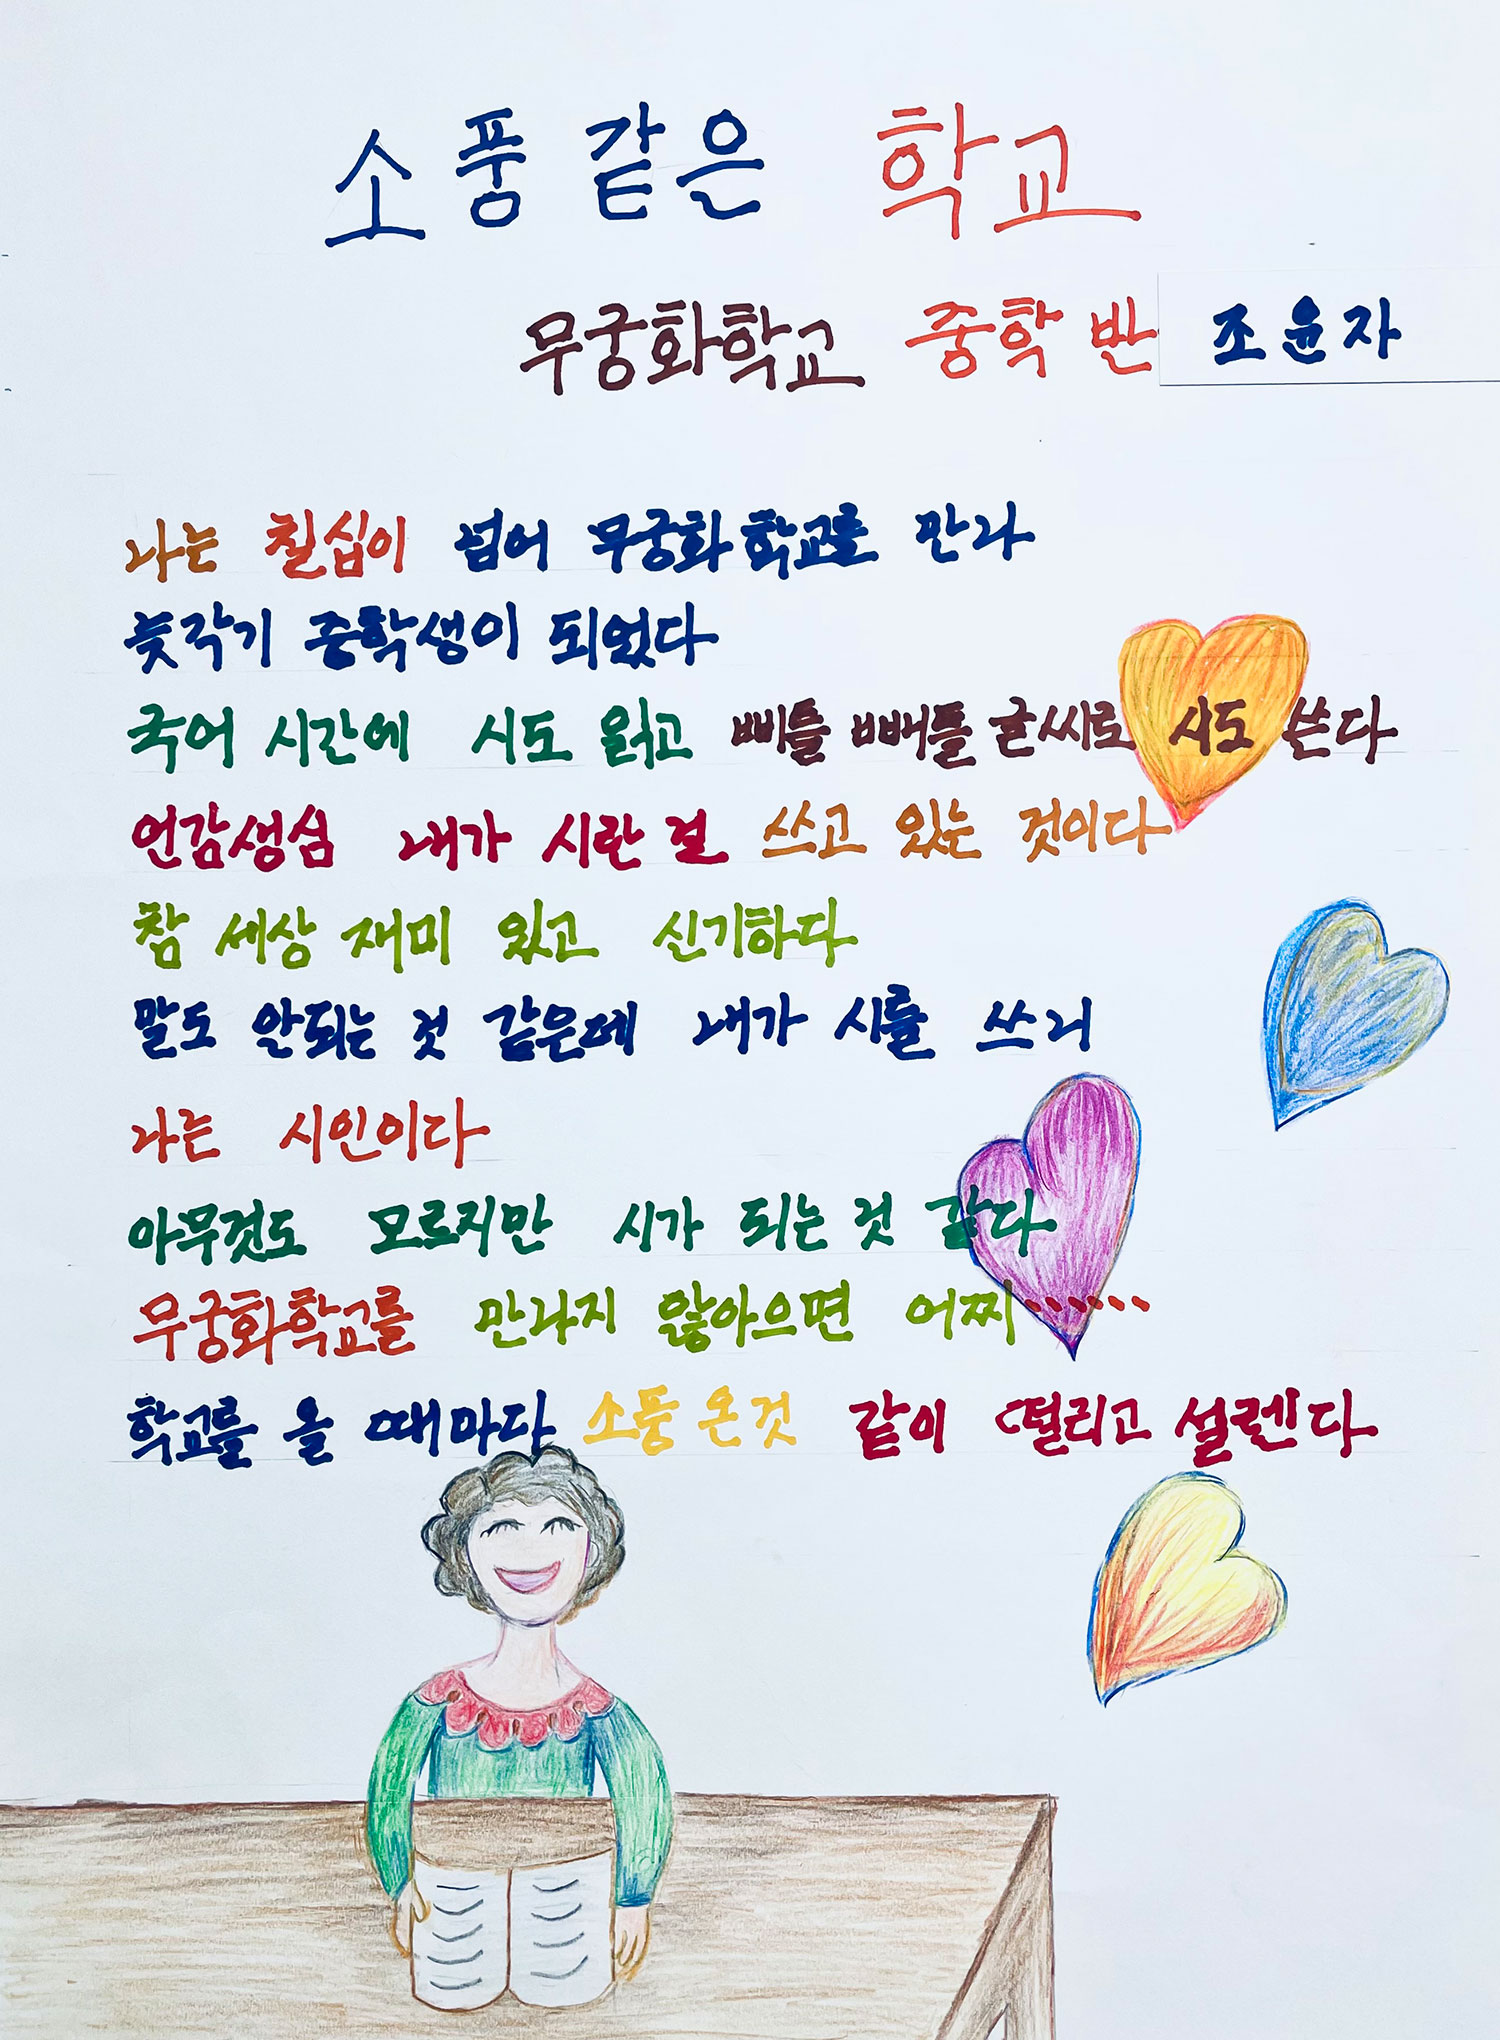 소풍 같은 학교
무궁화학교 중학 반 조윤자
나는 칠십이 넘어 무궁화 학교를 만나
늦각기 중학생이 되었다
국어 시간에 시도 읽고 삐뜰 빼뜰 글씨로 시도 쓴다
언감생심 내가 시란 걸 쓰고 있는 것이다
참 세상 재미 있고 신기하다
말도 안되는 것 같은데 내가 시를 쓰니
나는 시인이다
아무것도 모르지만 시가 되는 것 같다
무궁화학교를 만나지 않아으면 어찌.......
학교를 올 때마다 소풍 온것 같이 떨리고 설렌다